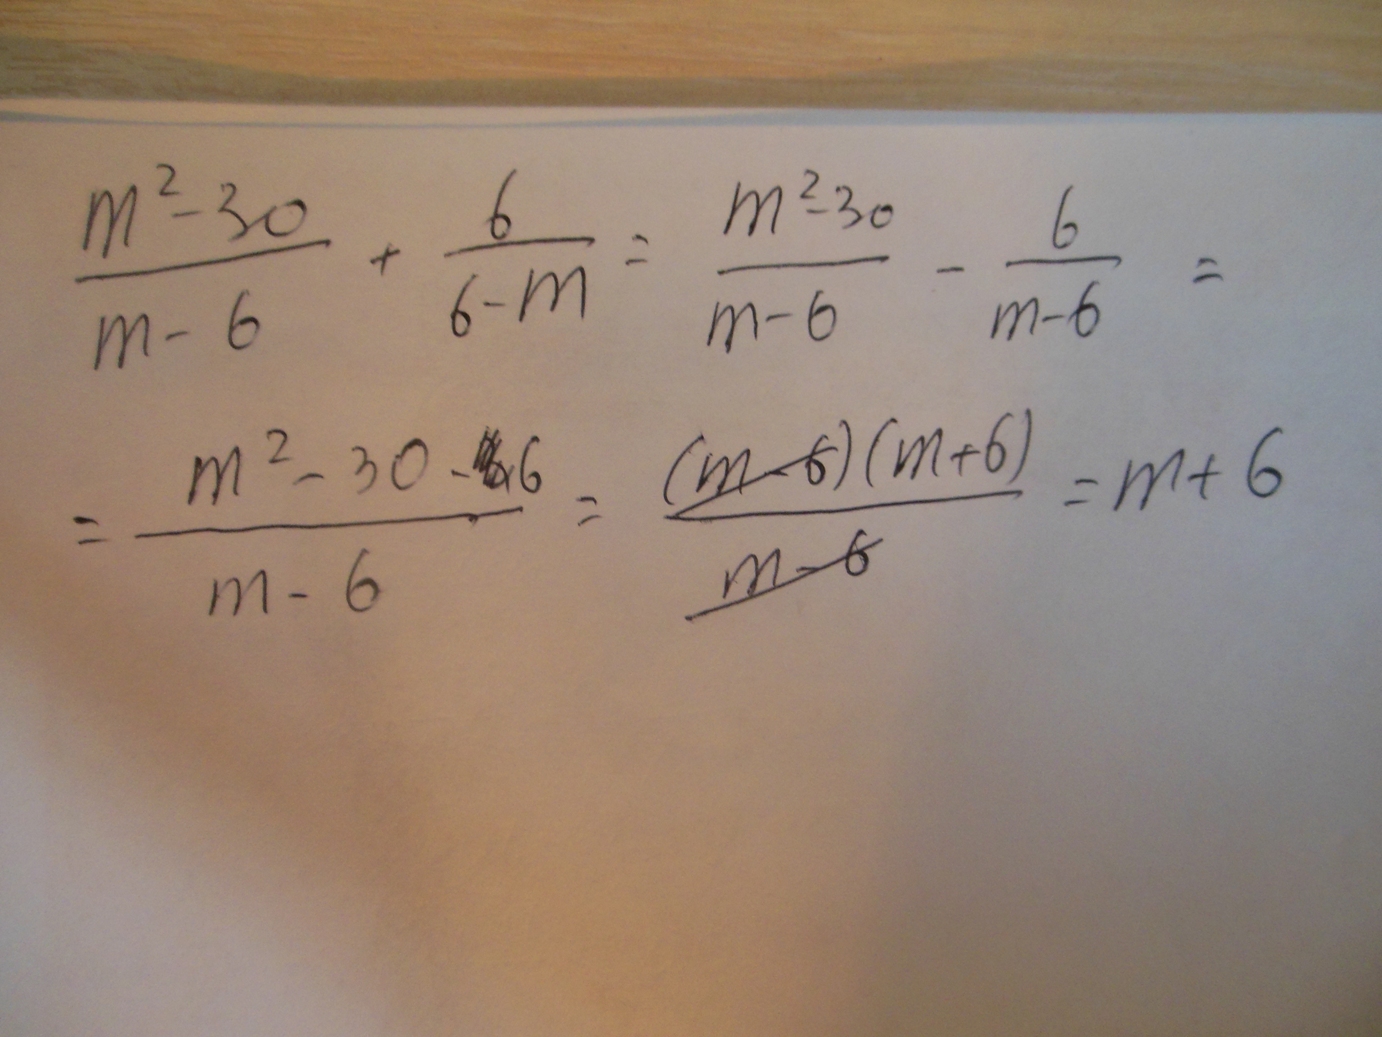 m²-30/m-6 + 6/6-m = m²-30/m-6 - 6/m-6 =
= m²-30-6/m-6 = (m-6)(m+6)/m-6 = m+6